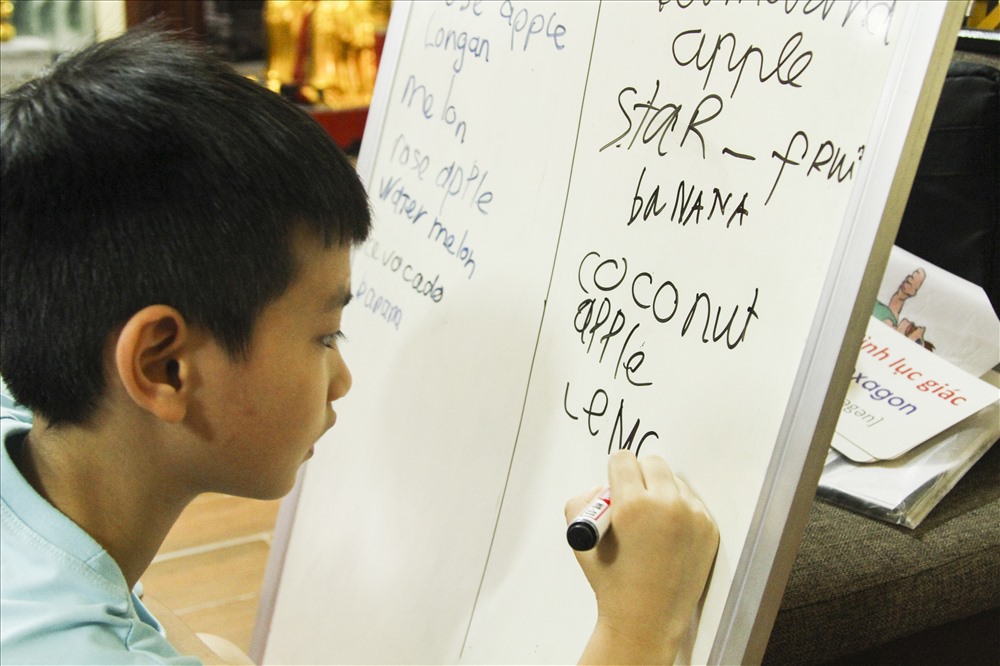 rose apple
Longan
melon
rose apple
Water melon
avocado
banana
apple
StaR - fRui
baNANA
coconut
apple
Lemo
inh lục giác
xagon